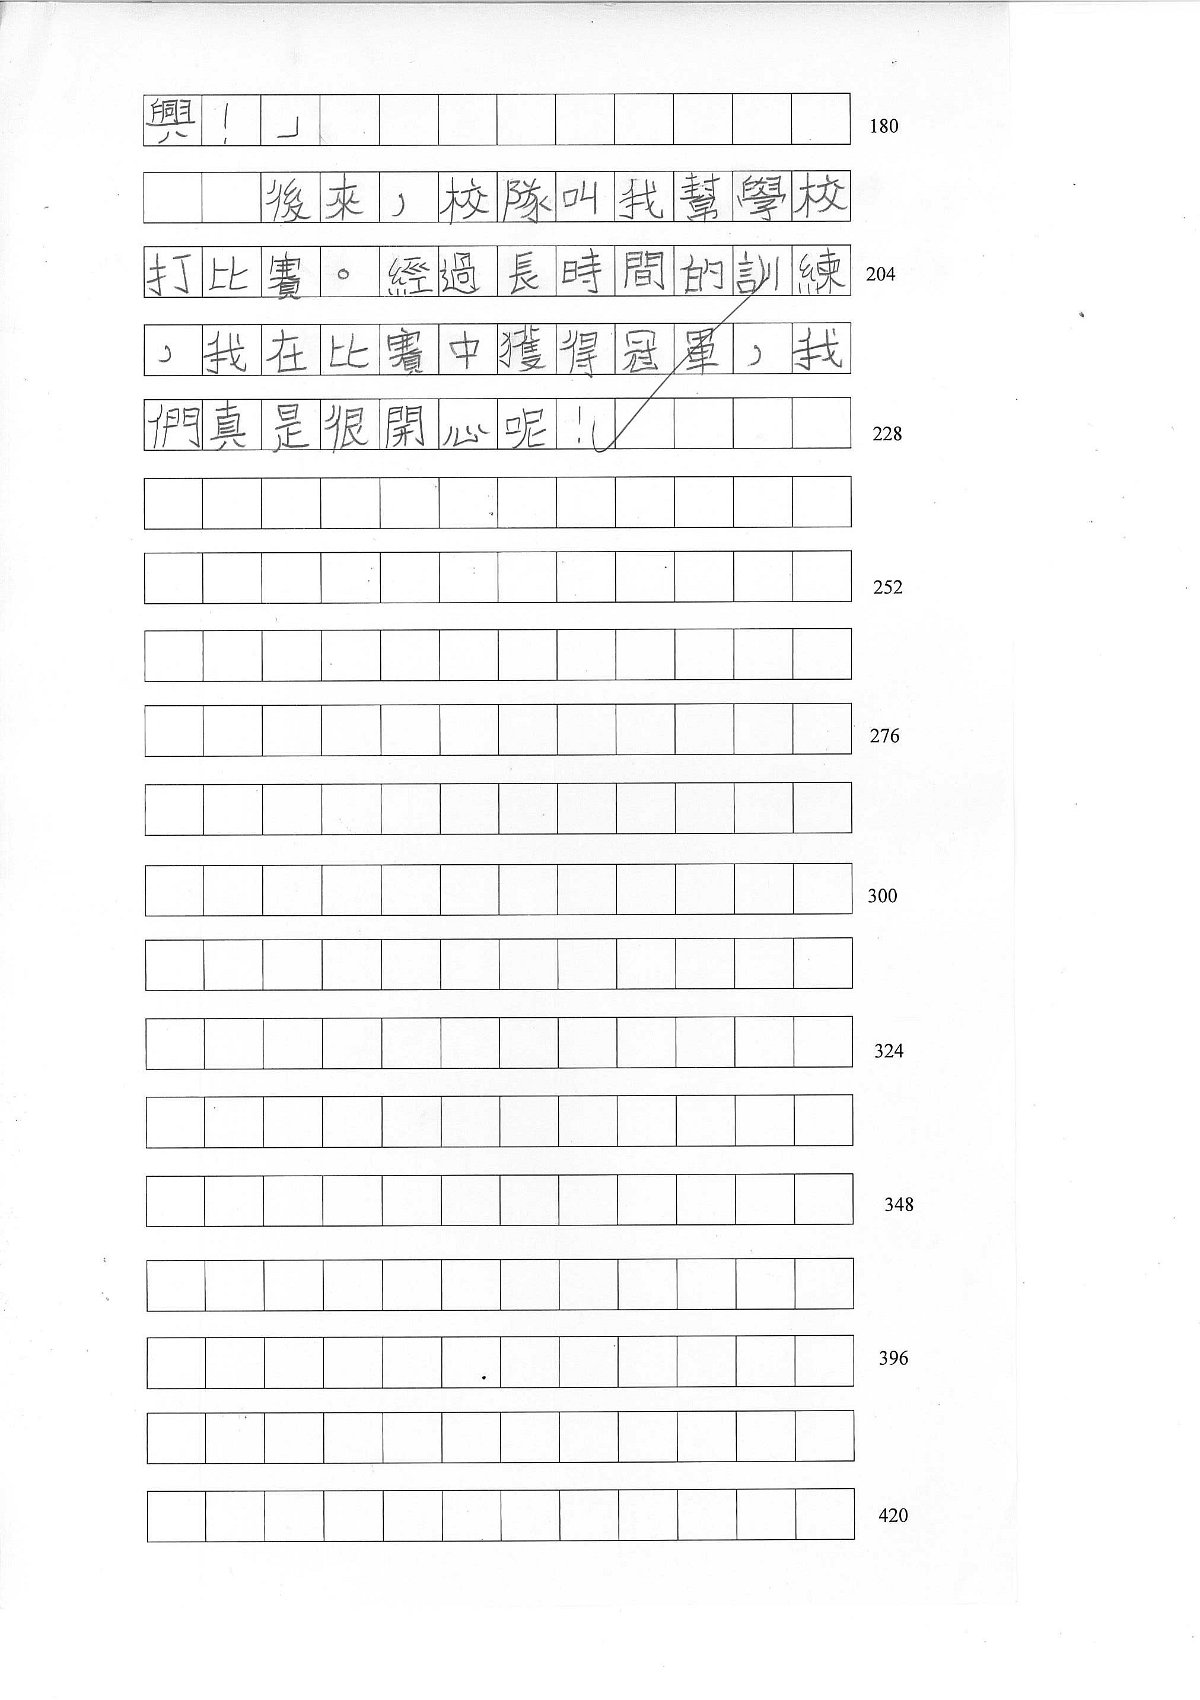 興！」
180
後來，校隊叫我幫學校
打比賽。經過長時間的訓練
204
，我在比賽中獲得冠軍，我
們真是很開心呢！
228
252
276
300
324
348
396
420